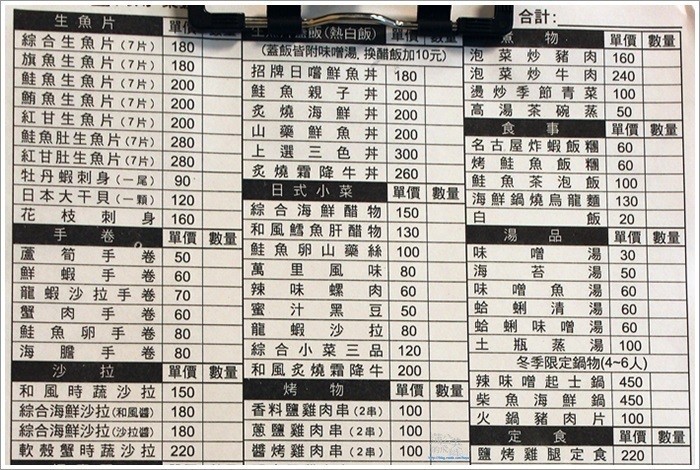 生魚片 單價 數量
綜合生魚片(7片) 180
旗魚生魚片(7片) 180
鮭魚生魚片(7片) 200
鮪魚生魚片(7片) 200
紅甘生魚片(7片) 200
鮭魚肚生魚片(7片) 280
紅甘肚生魚片(7片) 280
牡丹蝦刺身(一尾) 90
日本大干貝(一顆) 120
花枝刺身 160
手卷 單價 數量
蘆筍手卷 50
鮮蝦手卷 60
龍蝦沙拉手卷 70
蟹肉手卷 60
鮭魚卵手卷 80
海膽手卷 80
沙拉 單價 數量
和風時蔬沙拉 150
綜合海鮮沙拉(和風醬) 180
綜合海鮮沙拉(沙拉醬) 180
軟殼蟹時蔬沙拉 220
蓋飯(熱白飯) 單價 數量
(蓋飯皆附味噌湯, 換醋飯加10元)
招牌日嚐鮮魚丼 180
鮭魚親子丼 200
炙燒海鮮丼 200
山藥鮮魚丼 200
上選三色丼 300
炙燒霜降牛丼 260
日式小菜 單價 數量
綜合海鮮醋物 150
和風鱈魚肝醋物 130
鮭魚卵山藥絲 100
萬里風味 80
辣味螺肉 60
蜜汁黑豆 50
龍蝦沙拉 80
綜合小菜三品 120
和風炙燒霜降牛 200
烤物 單價 數量
香料鹽雞肉串(2串) 100
蔥鹽雞肉串(2串) 100
醬烤雞肉串(2串) 100
合計:
煮物 單價 數量
泡菜炒豬肉 160
泡菜炒牛肉 240
燙炒季節青菜 100
高湯茶碗蒸 50
食事 單價 數量
名古屋炸蝦飯糰 60
烤鮭魚飯糰 60
鮭魚茶泡飯 100
海鮮鍋燒烏龍麵 130
白飯 20
湯品 單價 數量
味噌湯 30
海苔湯 50
味噌魚湯 60
蛤蜊清湯 60
蛤蜊味噌湯 60
土瓶蒸湯 100
冬季限定鍋物(4~6人)
辣味噌起士鍋 450
柴魚海鮮鍋 450
火鍋豬肉片 100
定食 單價 數量
鹽烤雞腿定食 220